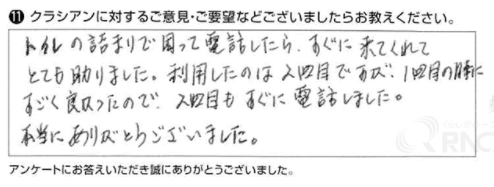 ⓫ クラシアンに対するご意見・ご要望などございましたらお教えください。
トイレの詰まりで困って電話したら、すぐに来てくれて
とても助りました。利用したのは2回目ですが、1回目の時に
すごく良かったので、2回目もすぐに電話しました。
本当にありがとうございました。
RNC
アンケートにお答えいただき誠にありがとうございました。